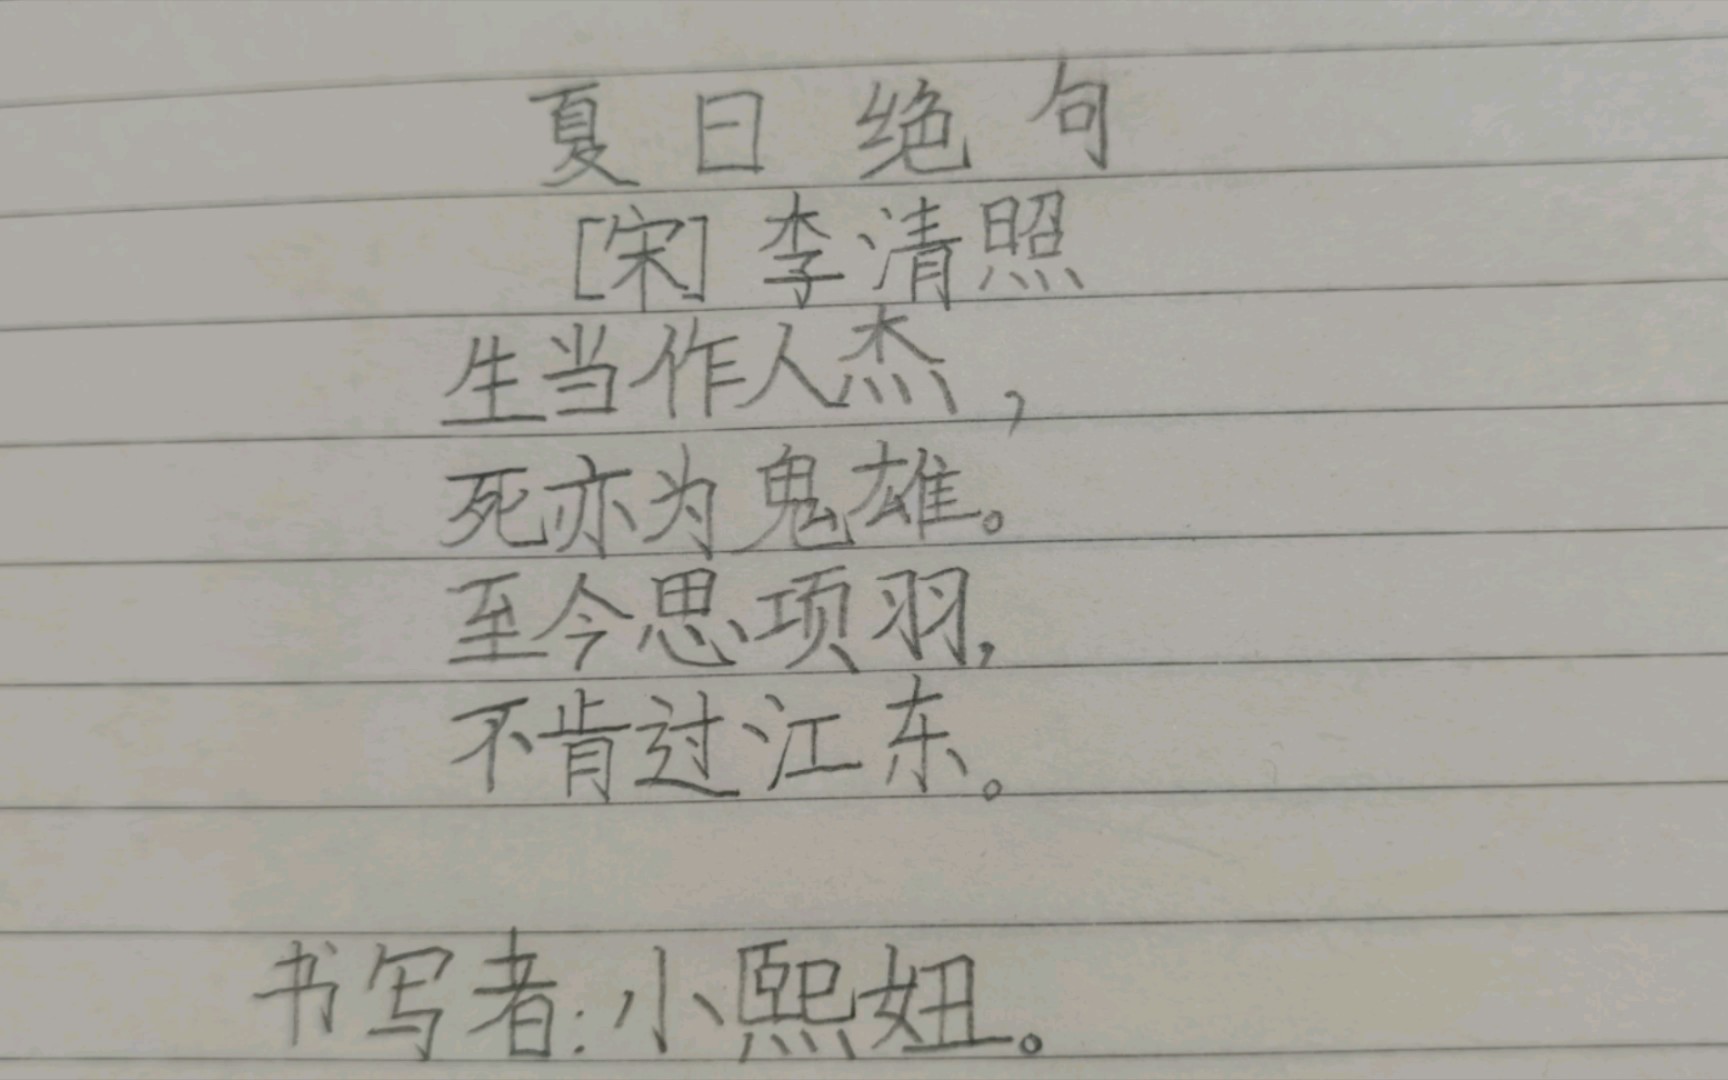 夏日绝句
[宋]李清照
生当作人杰，
死亦为鬼雄。
至今思项羽，
不肯过江东。
书写者：小熙妞。